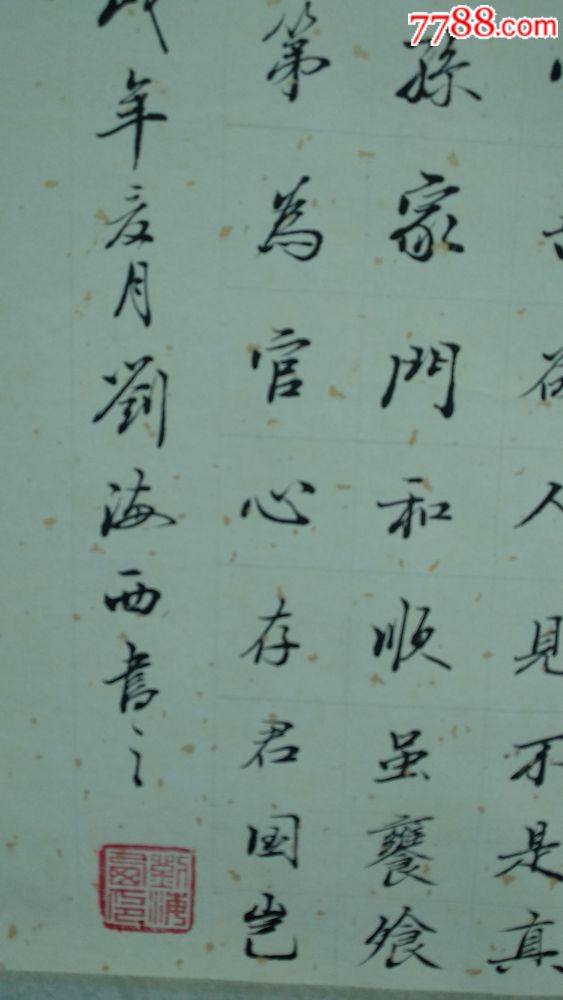 7788.com
欲人見不是真
孫家門和順虽饔飧
第為官心存君国岂
年夏月劉海西書之
劉海西印